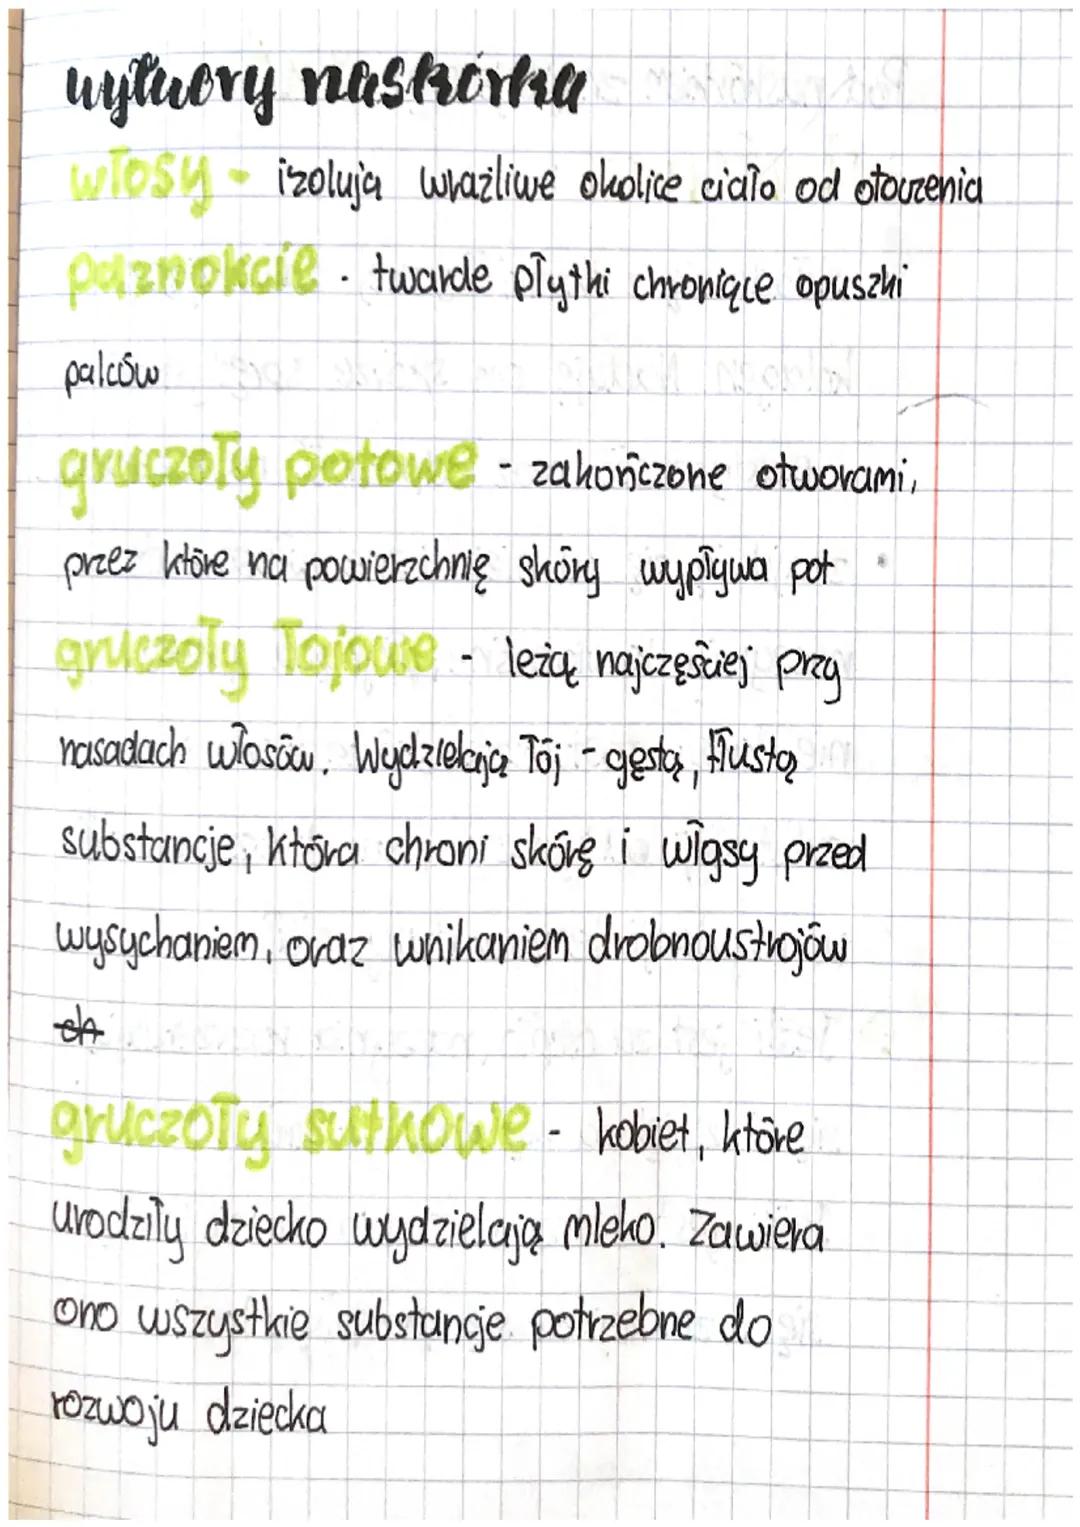 wytwory naskórka
włosy - izolują wrażliwe okolice ciało od otoczenia
paznokcie - twarde płytki chroniące opuszki
palców
gruczoły potowe - zakończone otworami,
przez które na powierzchnię skóry wypływa pot
gruczoły łojowe - leżą najczęściej przy
nasadach włosów. Wydzielają łój - gęstą, tłustą
substancje, która chroni skórę i włosy przed
wysychaniem, oraz wnikaniem drobnoustrojów
gruczoły sutkowe - kobiet, które
urodziły dziecko wydzielają mleko. Zawiera
ono wszystkie substancje potrzebne do
rozwoju dziecka